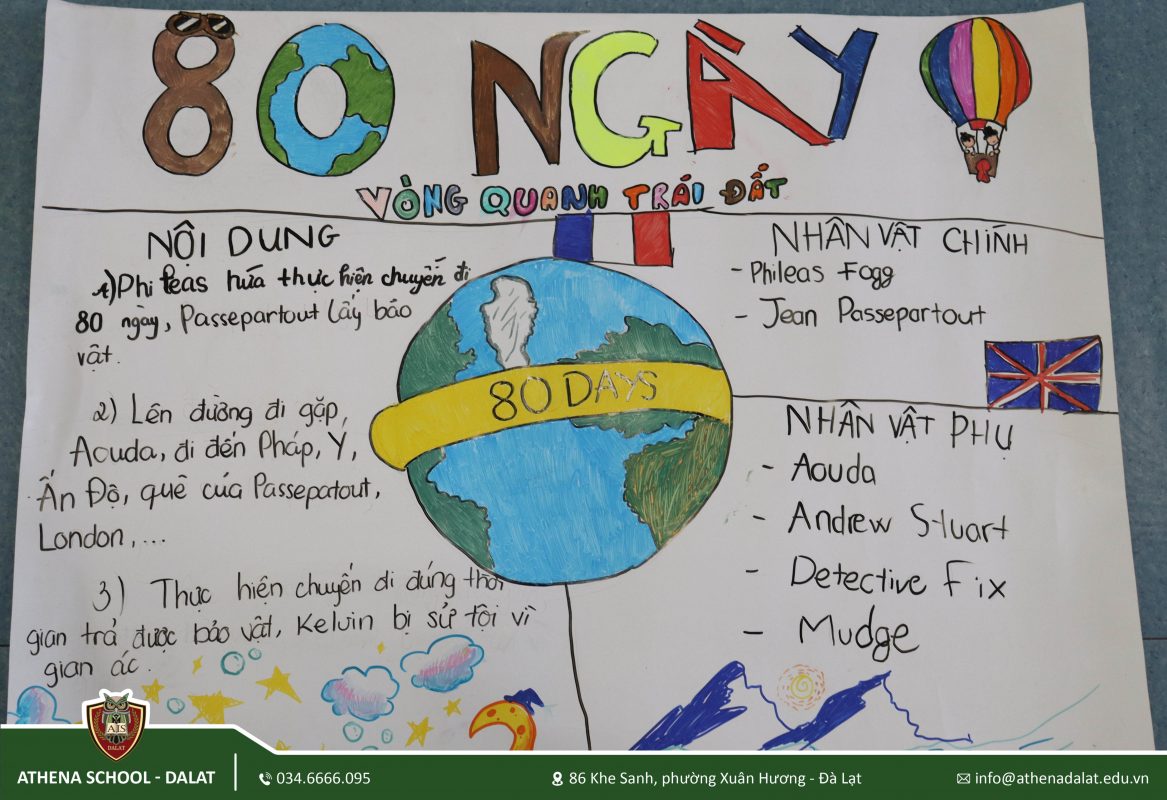 80 NGÀY
VÒNG QUANH TRÁI ĐẤT
NỘI DUNG
1) Phileas hứa thực hiện chuyến đi
80 ngày, Passepartout lấy báo
vật.
2) Lên đường đi gặp,
Aouda, đi đến Pháp, Ý,
Ấn Độ, quê của Passepatout,
London,...
3) Thực hiện chuyến đi đúng thời
gian trả được bảo vật, Kelvin bị sử tội vì
gian ác.
80 DAYS
NHÂN VẬT CHÍNH
- Phileas Fogg
- Jean Passepartout
NHÂN VẬT PHỤ
- Aouda
- Andrew Stuart
- Detective Fix
- Mudge
AIS
DALAT
ATHENA SCHOOL - DALAT
034.6666.095
86 Khe Sanh, phường Xuân Hương - Đà Lạt
info@athenadalat.edu.vn